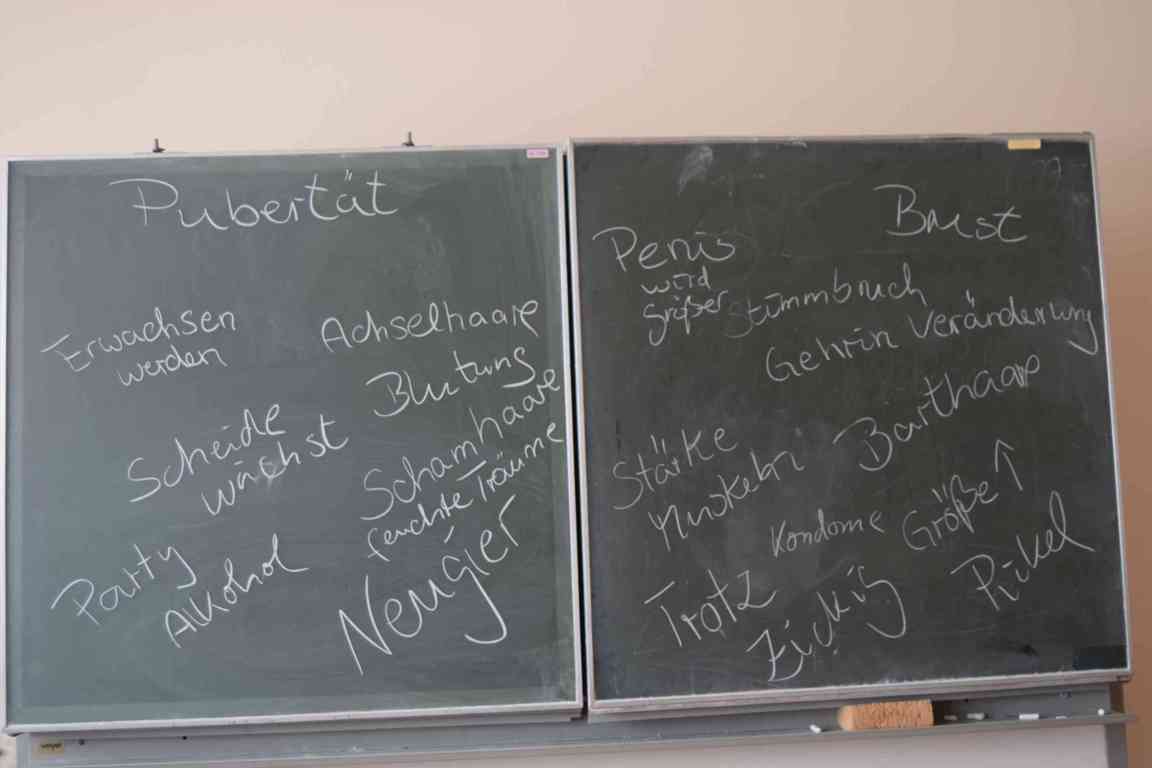 Pubertät
Erwachsen
werden
Achselhaare
Blutung
Scheide
wächst
Schamhaare
feuchte Träume
Neugier
Party
Alkohol
Brust
Penis
wird
größer
Stimmbruch
Gehirn Veränderung
Barthaare
Stärke
Muskeln
Kondome
Größe ↑
Pickel
Trotz
Zickig